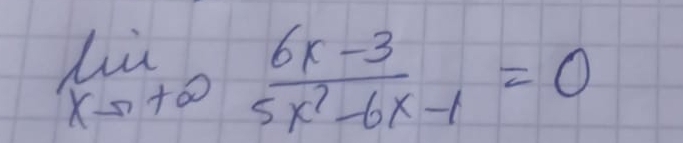 lim x→+∞ (6x-3)/(5x²-6x-1) = 0